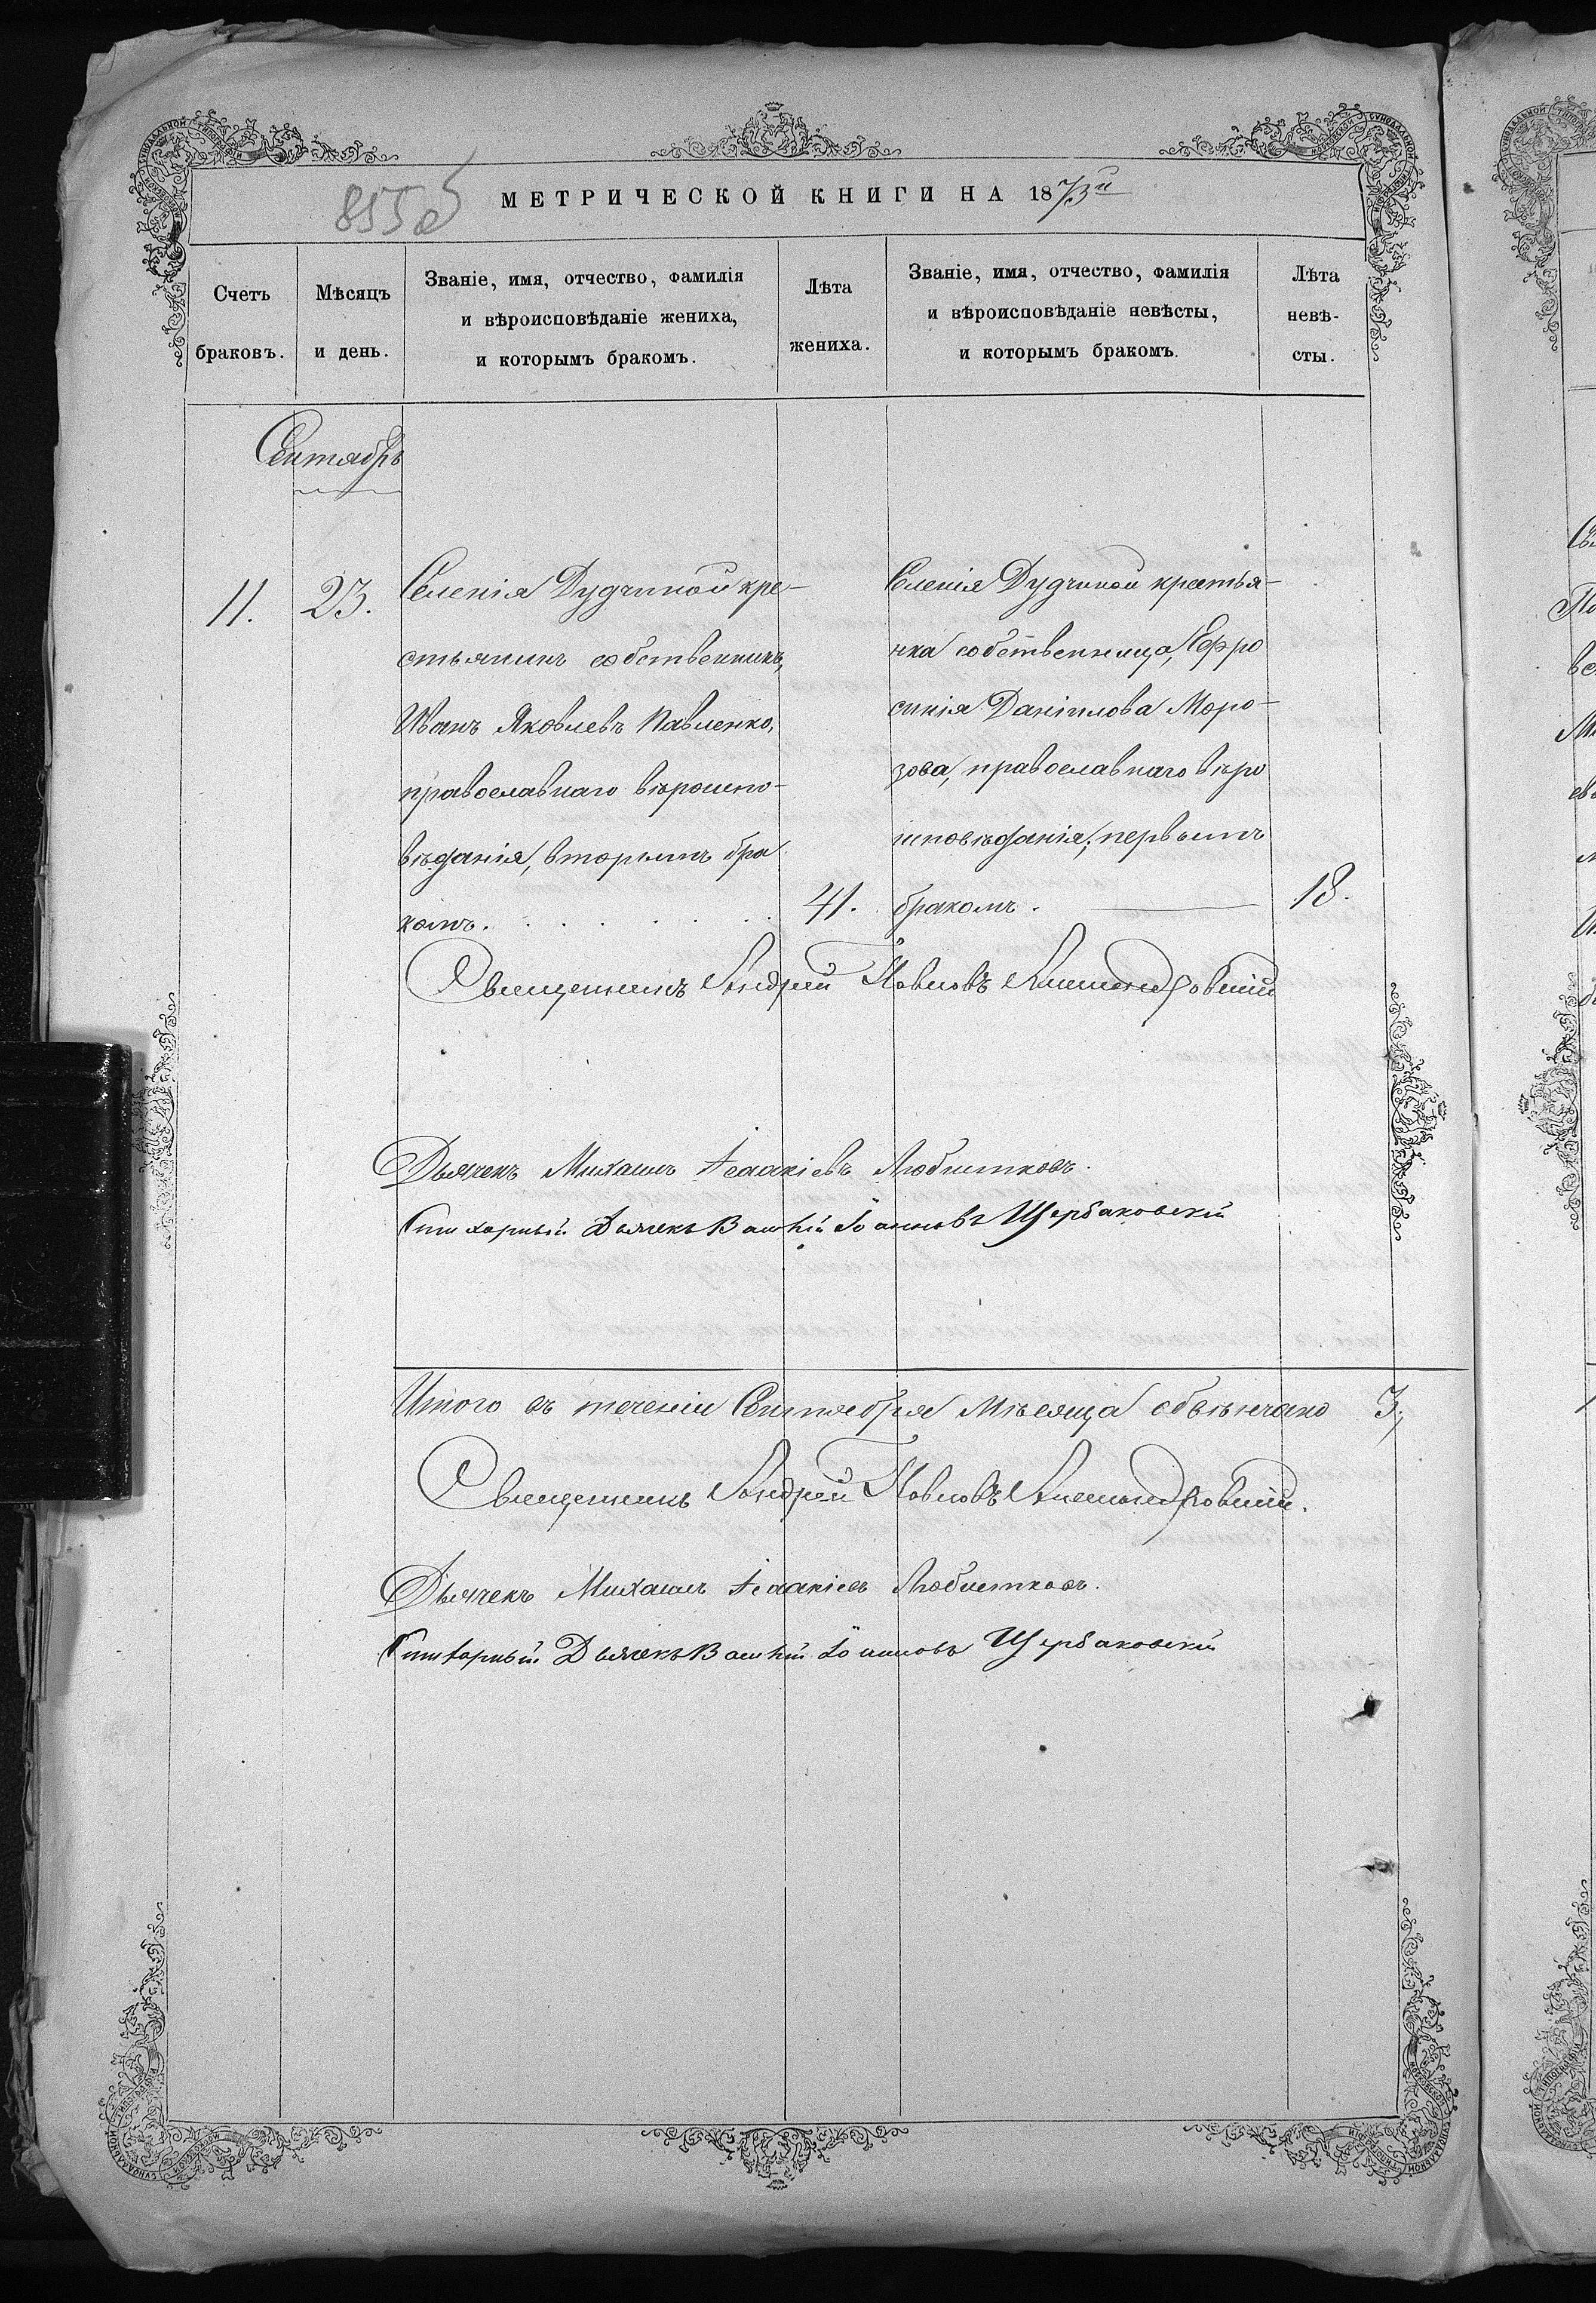 855 об
МЕТРИЧЕСКОЙ КНИГИ НА 1873й
Счетъ
браковъ.
Мѣсяцъ
и день.
Званіе, имя, отчество, фамилія
и вѣроисповѣданіе жениха,
и которымъ бракомъ.
Лѣта
жениха.
Званіе, имя, отчество, фамилія
и вѣроисповѣданіе невѣсты,
и которымъ бракомъ.
Лѣта
невѣ-
сты.
Сентябрь
11.
23.
Селенія Дудчиной кре-
стьянинъ собственникъ,
Иванъ Яковлевъ Павленко,
православнаго вѣроиспо-
вѣданія, вторымъ бра
комъ.
41.
Селенія Дудчиной крестья-
нка собственница, Ефро
синія Даніилова Моро-
зова, православнаго вѣро
исповѣданія; первымъ
бракомъ.
18.
Священникъ Андрей Павловъ Александровскій
Дьячекъ Михаилъ Ісаакіевъ Любистковъ.
Дьячекъ Іоанновъ Щербаковскій
Итого въ теченіи Сентября мѣсяца обвѣнчано 3;
Священникъ Андрей Павловъ Александровскій.
Дьячекъ Михаилъ Ісаакіевъ Любистковъ.
Дьячекъ Іоанновъ Щербаковскій